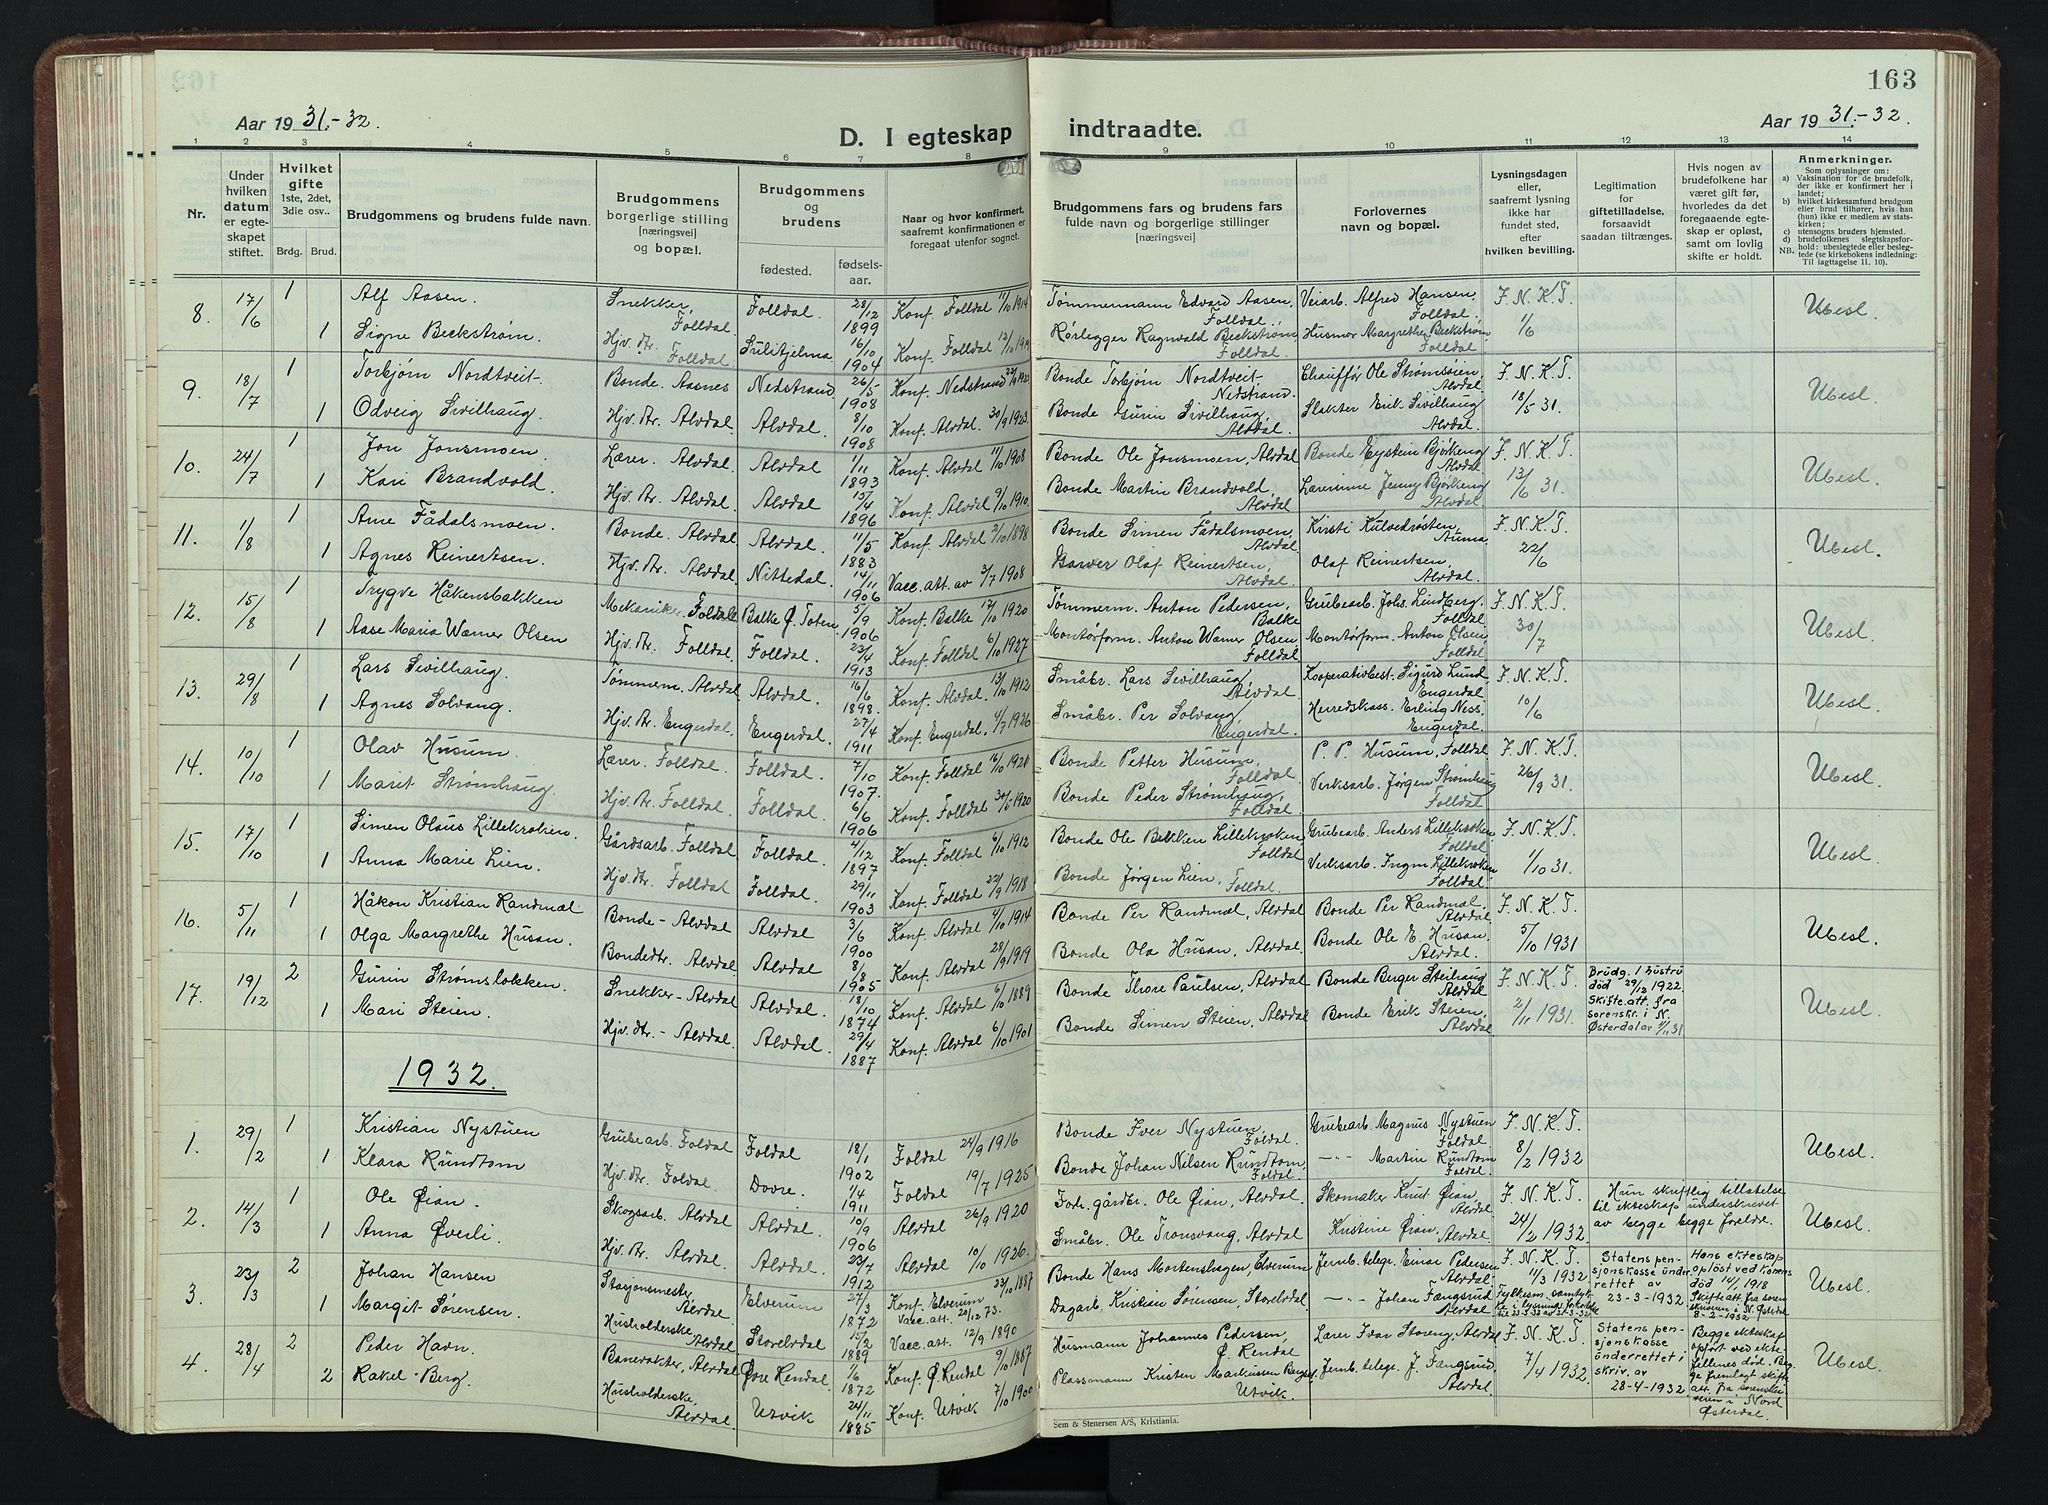 163
Aar 1931.-32.
D. I egteskap
indtraadte.
Aar 1931.-32.
1 2 3 4 5 6 7 8 9 10 11 12 13 14
Nr.
Under hvilken datum er egteskapet stiftet.
Hvilket gifte 1ste, 2det, 3die osv..
Brdg. Brud.
Brudgommens og brudens fulde navn.
Brudgommens borgerlige stilling [næringsvei] og bopæl.
Brudgommens og brudens
fødested.
fødselsaar.
Naar og hvor konfirmert, saafremt konfirmationen er foregaat utenfor sognet.
Brudgommens fars og brudens fars fulde navn og borgerlige stillinger [næringsvei]
Forlovernes navn og bopæl.
Lysningsdagen eller, saafremt lysning ikke har fundet sted, efter hvilken bevilling.
Legitimation for giftetilladelse, forsaavidt saadan tiltrænges.
Hvis nogen av brudefolkene har været gift før, hvorledes da det foregaaende egteskap er opløst, samt om lovlig skifte er holdt.
Anmerkninger.
Som oplysning om:
a) Vaksination for de brudefolk, der ikke er konfirmert her i landet;
b) hvilket kirkesamfund brudgom eller brud tilhører, hvis han (hun) ikke er medlem av statskirken;
c) utensogns bruders hjemsted.
d) brudefolkenes slegtskapsforhold: ubeslegtede eller beslegtede (se kirkebokens indledning: NB. Til iagttagelse II. 10).
8. 17/6 1 Alf Aasen. Snekker, Folldal. Folldal. 28/12 1899 Konf. Folldal 11/10 1914 Tømmermann Edvard Aasen, Folldal. Veiarb. Alfred Hansen, Folldal. F. N. K. T. Ubesl.
1 Signe Beckstrøm. Hjv. dtr. Folldal Sulitjelma 16/10 1904 Konf. Folldal 12/10 1919 Rørlegger Ragnvald Beckstrøm Folldal. Husmor Margrethe Beckstrøm Folldal. 1/6
9. 18/7 1 Torbjørn Nordtveit. Bonde. Aasnes Nedstrand 26/5 1908 Konf. Nedstrand Bonde Torbjørn Nordtveit Nedstrand. Chauffør Ole Strømsøien, Alvdal. F. N. K. T. Ubesl.
1 Odveig Sivilhaug. Hjv. dtr. Alvdal. Alvdal. 8/10 1908 Konf. Alvdal. 30/9 1923. Bonde Guren Sivilhaug, Alvdal. Slakter Erik Sivilhaug Alvdal. 18/5 31.
10. 24/7 1 Jon Jonsmoen. Lærer. Alvdal. Alvdal 1/11 1893 Konf. Alvdal 11/10 1908 Bonde Ole Jonsmoen, Alvdal Bonde Eystein Bjørkeng Alvdal. F. N. K. T. Ubesl.
1 Kari Brandvold. Hjv. dtr. Alvdal. Alvdal 15/4 1896 Konf. Alvdal 9/10 1910. Bonde Martin Brandvold, Alvdal Lærerinne Jenny Bjørkeng Alvdal. 13/6 31.
11. 1/8 1 Arne Fådalsmoen. Bonde. Alvdal Alvdal. 11/5 1883 Konf. Alvdal 2/10 1898 Bonde Simen Fådalsmoen, Alvdal. Kristi Kulvedrøsten, Auma. F. N. K. T. Ubesl.
1 Agnes Reinertsen. Hjv. dtr. Alvdal Nittedal. 14/11 1906 Vacc. att. av 3/7 1908 Garver Olaf Reinertsen, Alvdal. Olaf Reinertsen, Alvdal. 22/6
12. 15/8 1 Trygve Håkensbakken Mekaniker. Folldal Balke Ø. Toten. 5/9 1906 Konf. Balke 17/10 1920 Tømmerm. Anton Pedersen, Balke Grubearb. Johs. Lindberg. Folldal. F. N. K. T. Ubesl.
1 Aase Maria Warner Olsen Hjv. dtr. Folldal. Folldal. 23/4 1913 Konf. Folldal 6/10 1927 Montørform. Anton Warner Olsen Folldal Montørform. Anton Olsen Folldal. 30/7
13. 29/8 1 Lars Sivilhaug. Tømmerm. Alvdal Alvdal. 16/6 1898. Konf. Alvdal 13/10 1912 Småbr. Lars Sivilhaug, Alvdal. Kooperativbest. Sigurd Lund, Engerdal F. N. K. T. Ubesl.
1 Agnes Solvang. Hjv. dtr. Engerdal. Engerdal. 27/4 1911 Konf. Engerdal. 4/7 1926 Småbr. Per Solvang, Engerdal. Herredskass. Erling Ness, Engerdal. 10/6
14. 10/10 1 Olav Husum. Lærer. Folldal. Folldal. 7/10 1907. Konf. Folldal Bonde Petter Husum, Folldal. P. P. Husum, Folldal F. N. K. T. Ubesl.
1 Marit Strømhaug. Hjv. dtr. Folldal. Folldal. 6/6 1906 Konf. Folldal 30/5 1920 Bonde Peder Strømhaug, Folldal. Verksarb. Jørgen Strømhaug Folldal. 26/9 31
15. 17/10 1 Simen Olaus Lillekroken. Gårdsarb. Folldal Folldal. 4/12 1897 Konf. Folldal 6/10 1912 Bonde Ole Bakken Lillekroken Folldal Grubearb. Anders Lillekroken Folldal F. N. K. T. Ubesl.
1 Anna Marie Lien. Hjv. dtr. Folldal Folldal. 29/11 1903 Konf. Folldal 22/9 1918 Bonde Jørgen Lien, Folldal. Verksarb. Ingm. Lillekroken Folldal. 1/10 31.
16. 5/11 1 Håkon Kristian Randmæl Bonde - Alvdal Alvdal 3/6 1900 Konf. Alvdal 4/10 1914 Bonde Per Randmæl, Alvdal Bonde Per Randmæl, Alvdal F. N. K. T. Ubesl.
1 Olga Margrethe Husan. Bondedtr. Alvdal Alvdal 8/8 1905 Konf. Alvdal 28/9 1919 Bonde Ola Husan, Alvdal Bonde Ole E. Husan. Alvdal. 5/10 1931
17. 19/12 2 Gurin Strømsløkken. Snekker - Alvdal Alvdal. 18/10 1874 Konf. Alvdal 6/10 1889 Bonde Thore Paulsen, Alvdal Bonde Berger Steihaug Alvdal F. N. K. T. Brudg. 1 hustru død 29/12 1922. Skifte.att. fra sorenskr. i N. Østerdal av /11 31 Ubesl.
1 Mari Steien. Hjv. dtr. - Alvdal. Alvdal. 29/4 1887 Konf. Alvdal 6/10 1901 Bonde Simen Steien, Alvdal Bonde Erik Steien, Alvdal 2/11 1931.
1932.
1. 29/2 1 Kristian Nystuen Grubearb. Foldal Foldal 18/1 1902 Foldal 24/9 1916 Bonde Iver Nystuen, Foldal. Grubearb. Magnus Nystuen Foldal F. N. K. T. Ubesl.
1 Klara Rundtom Hjv. dtr. Foldal. Dovre. 1/4 1911 Foldal 19/7 1925 Bonde Johan Nilsen Rundtom, Foldal. -"- Martin Rundtom Foldal. 8/2 1932
2. 14/3 1 Ole Øian. Skogsarb. Alvdal Alvdal. 10/9 1906 Alvdal 26/9 1920 Forh. gårdbr. Ole Øian, Alvdal. Skomaker Knut Øian, Alvdal F. N. K. T. Hun skriftlig tillatelse til ekteskap underskrevet av begge begge foreldre. Ubesl.
1 Anna Øverli. Hjv. dtr. Alvdal. Alvdal. 23/7 1912 Alvdal 10/10 1926. Småbr. Ole Tronsvang, Alvdal Kristine Øian, Alvdal. 24/2 1932
3. 23/3 2 Johan Hansen Stasjonsmester Alvdal. Elverum 27/3 1872 Konf. Elverum 23/10 1887 Vacc. att. 20/12 73. Bonde Hans Mortenshagen, Elverum Jernb. telegr. Einar Pedersen Alvdal. F. N. K. T. 11/3 1932 Statens pensjonskasse underrettet av 23-3-1932 Hans ekteskap opløst ved konens død 14/1 1918 Skifte att fra sorenskriveren i N. Østerdal 8-2-1932 Ubesl.
1 Margit Sørensen. Husholderske, Alvdal Storelvdal 15/2 1889 Vacc. att. 12/9 1890 Dagarb. Kristian Sørensen, Storelvdal -"- Johan Fangsrud Alvdal
4. 28/4 2 Peder Havn. Banevakter, Alvdal Øvre Rendal 1/6 1872 Konf. Ø. Rendal 9/10 1887 Husmann Johannes Pedersen, Ø. Rendal Lærer Ivar Storeng, Alvdal F. N. K. T. Statens pensjonskasse underrettet i skriv. av 28-4-1932 Begge ekteskap opført ved ektefellenes død. Begge fremlagt skifte att. fra sorenskriveren i Nord Østerdal. Ubesl.
2 Rakel Berg. Husholderske, Alvdal Utvik 24/11 1885 Konf. Utvik 7/10 1900 Plassmann Kristen Markussen Berget Utvik Jernb. telegr. J. Fangsrud, Alvdal 7/4 1932
Sem & Stenersen A/S, Kristiania.